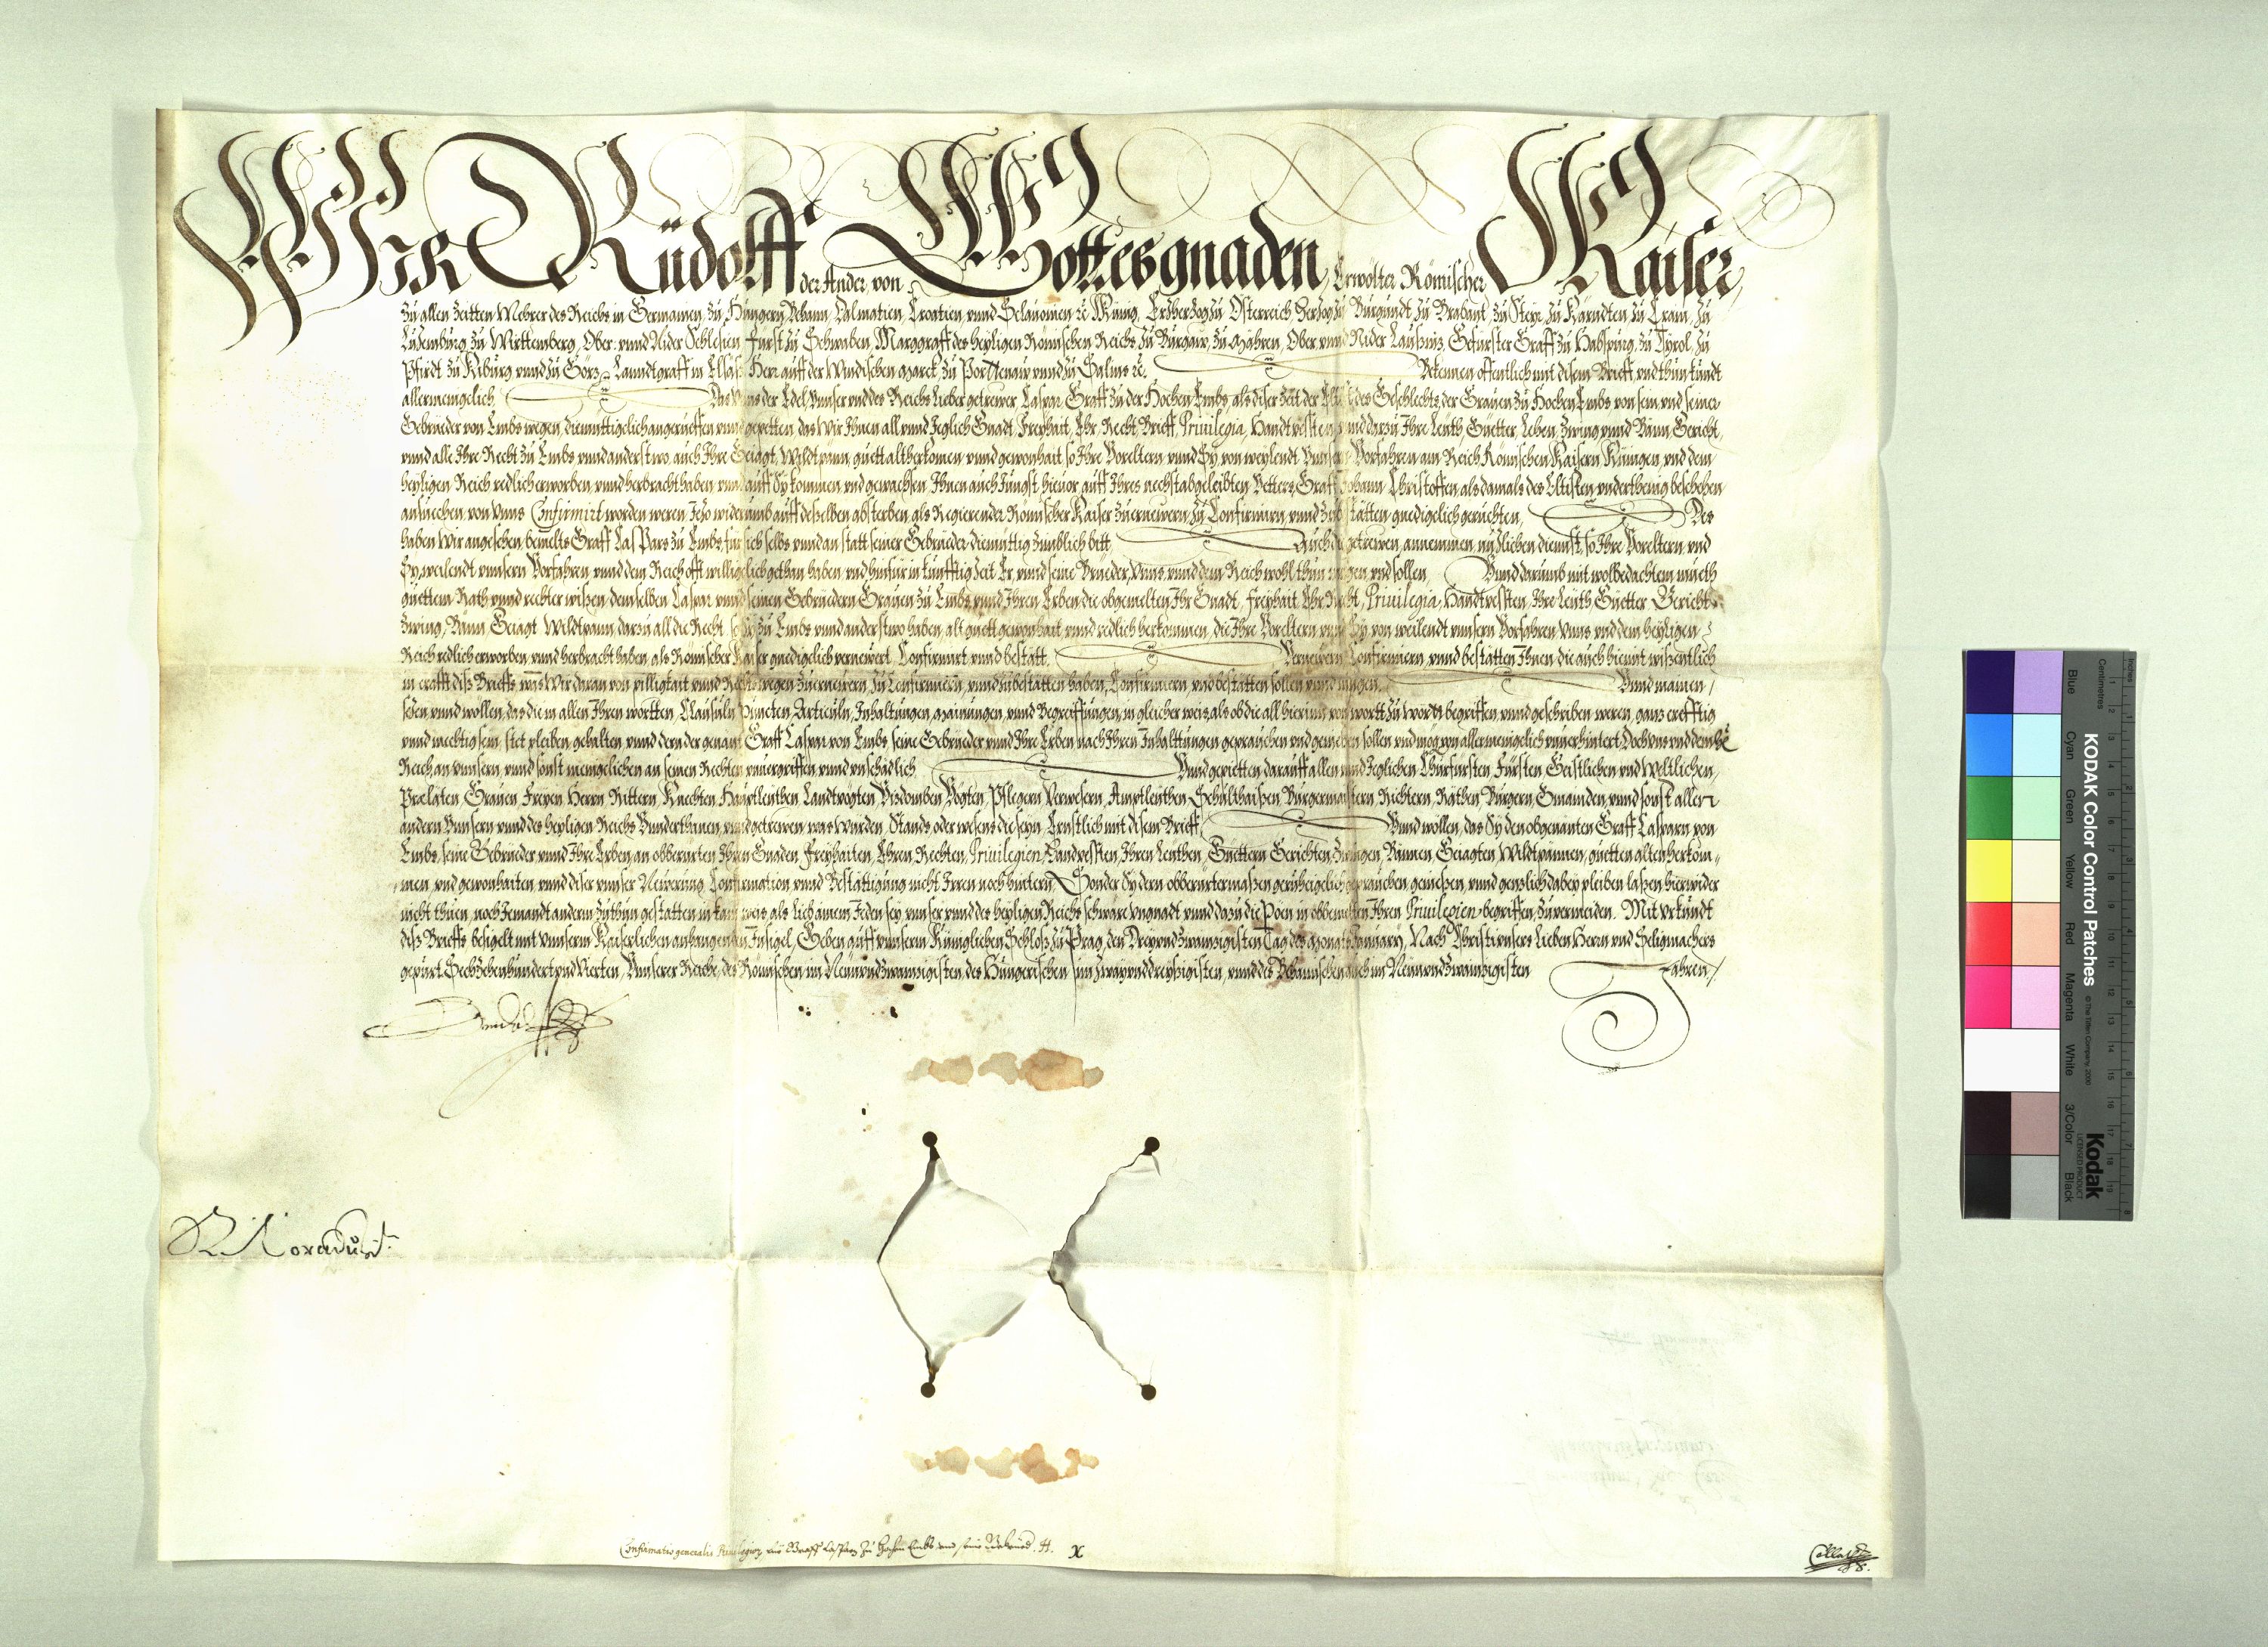 Wir Rudolff der Ander, von Gottes gnaden, Erwölter Römischer Kaiser,
zu allen Zeitten Mehrer des Reichs in Germanien, zu Hungern, Behaim, Dalmatien, Croatien, vnnd Sclauonien ꝛc Künig, Ertzhertzog zu Osterreich Hertzog zu Burgundt, zu Brabant, zu Steyr, zu Kärndten, zu Crain, zu
Lutzemburg, zu Wirttemberg, Ober vnnd Nider Schlesien, Fürst zu Schwaben, Marggraff des heyligen Römischen Reichs zu Burgaw, zu Mähren, Ober vnnd Nider Laußnitz, Gefürster Graff zu Habspurg, zu Tyrol, zu
Pfirdt, zu Kiburg, vnnd zu Görtz, Lanndtgraff in Elsäß Herr auff der Windischen Marck, zu Porttenaw, vnnd zu Salins ꝛc. Bekennen offentlich mit disem Brieff, vnd thun kundt
allermenigelich Das vnns der Edel, vnnser vnd des Reichs Lieber getrewer, Caspar Graff zu der Hochen Embs, als diser Zeit der Eltist des Geschlechts der Grauen zu Hochen Embs, von sein, vnd seiner
Gebrüeder von Embs wegen, diemüttigelich angerüeffen vnnd gepetten, das Wir Ihnen all vnnd Jeglich Gnadt, Freyhait, Ehr, Recht, Brieff, Priuilegia, Handtvesten, vnnd darzu Ihre Leuth, Güetter, Lehen, Zwing vnnd Bänn Gericht,
vnnd alle Ihre Recht zu Embs vnnd anderstwo, auch Ihre Geiagt, Wildtpann, guett altherkomen, vnnd gewonhait, so Ihre Voreltern, vnnd Sy, von weylendt vnnsern Vorfahren am Reich Römischen Kaisern, Künigen, vnd dem
heyligen Reich redlich erworben, vnnd herbracht haben, vnnd auff Sy kommen, vnd gewachsen, Ihnen auch Jüngst hieuor auff Ihres nechst abgeleibten Vetters, Graff Johann Christoffen, als damals des Eltisten, vnderthenig beschehen
ansuechen, von vnns Confirmirt worden weren, Jetzo widerumb auff desselben absterben, als Regierender Römischer Kaiser zuernewern, zu Confirmirn, vnnd zubestätten gnedigelich geruchten, Des
haben Wir angesehen, bemelts Graff Caspars zu Embs, für sich selbs, vnnd an statt seiner Gebrüeder, diemüttig zimblich bitt, Auch die getrewen, annemmen, nutzlichen diennst, so Ihre Voreltern, vnd
Sy, weilendt vnnsern Vorfahren, vnnd dem Reich offt williglich gethan haben, vnd hinfür in künfftig Zeit Er, vnnd seine Brüeder, vnns, vnnd dem Reich wohl thun mögen, vnd sollen, Vnnd darumb mit wolbedachtem mueth
guettem Rath, vnnd rechter wißen, demselben Caspar, vnnd seinen Gebrüedern Grauen zu Embs, vnnd Ihren Erben, die obgemelten Ihr Gnadt, Freyhait, Ehr, Recht, Priuilegia, Handtvesten, Ihre Leuth, Güetter, Gericht,
Zwing, Bänn, Geiagt, Wildtpann, darzu all die Recht, so Sy zu Embs, vnnd anderstwo haben, alt guett gewonhait, vnnd redlich herkommen, die Ihre Voreltern vnnd Sy von weilendt vnnsern Vorfahren, vnns, vnd dem heyligen
Reich redlich erworben, vnnd herbracht haben, als Römischer Kaiser gnedigelich vernewert, Confirmirt, vnnd bestätt, Vernewern, Confirmiern, vnnd bestätten Ihnen die auch hiemit wißentlich
in crafft diß Brieffs, was Wir daran von pilligkait, vnnd Rechts wegen zuernewern, zu Confirmiern, vnnd zubestätten haben, Confirmiern, vnd bestätten sollen, vnnd mügen. Vnnd mainen,
setzen, vnnd wollen, das die in allen Ihren wortten, Clausuln, Puncten, Articuln, Inhaltungen, Mainungen, vnnd Begreiffungen, in gleicher weis, als ob die all hierinn von wortt zu wortt begriffen, vnnd geschriben weren, gantz crefftig
vnnd mechtig sein, stet pleiben, gehalten, vnnd dern der genant Graff Caspar von Embs, seine Gebrüeder, vnnd Ihre Erben, nach Ihren Inhalttungen geprauchen, vnd genießen sollen, vnd mög von allermenigelich vnuerhintert, Doch vns, vnd dem he
Reich, an vnnsern, vnnd sonst menigelichen an seinen Rechten vnuergriffen, vnnd vnschädlich. Vnnd gepietten darauff allen, vnnd Jeglichen Churfürsten, Fürsten, Geistlichen, vnd Weltlichen,
Prelaten, Grauen, Freyen, Herrn, Rittern, Knechten, Hauptleuthen, Landtvögten, Vizdomben, Vögten, Pflegern, Verwesern, Amptleuthen, Schulthaißen, Burgermaistern, Richtern, Räthen, Burgern, Gmainden, vnnd sonst allen
andern Vnnsern, vnnd des heyligen Reichs Vnnderthanen, vnnd getrewen, was Würden, Stands, oder wesens die seyn, Ernstlich mit disem Brieff, Vnnd wöllen, das Sy den obgenanten Graff Casparn von
Embs, seine Gebrüeder, vnnd Ihre Erben, an obberürten Ihren Gnaden, Freyhaiten, Ehren, Rechten, Priuilegien, Handtvesten, Ihren Leuthen, Güettern, Gerichten, Zwingen, Bännen, Geiagten, Wildtpännen, guetten alten herkom-
men, vnd gewonhaiten, vnnd diser vnnser Newerung, Confirmation, vnnd Bestättigung nicht Irren, noch hintern, Sonder Sy dern obberürtermaßen geruhigelich geprauchen, genießen, vnnd gentzlich dabey pleiben laßen, hierwider
nicht thuen, noch Jemandt andern zuthun gestatten, in kain weis, als lieb ainem Jeden sey, vnnser, vnnd des heyligen Reichs schwäre vngnadt, vnnd dazu die Pöen, in obbemelten Ihren Priuilegien begriffen, zuuermeiden. Mit vrkundt
diß Brieffs, besigelt mit vnnserm Kaiserlichen anhangendem Insigel, Geben auff vnnserm Küniglichen Schloß zu Prag, den Dreyvndzwainzigisten Tag des Monats January, Nach Christi vnsers Lieben Herrn, vnd Seligmachers
gepurt, Sechzehenhundert vnd Vierten, Vnnserer Reiche, des Römischen im Neunvndzwainzigisten, des Hungerischen im Zwayvnddreyßigisten, vnnd des Behaimschen auch im Neunvndzwainzigisten Jahren,
Rudolff
Confirmatio generalis Priuilegiorum für Graff Caspar zu Hohen Embs vnd seine Gebrüed. H. X